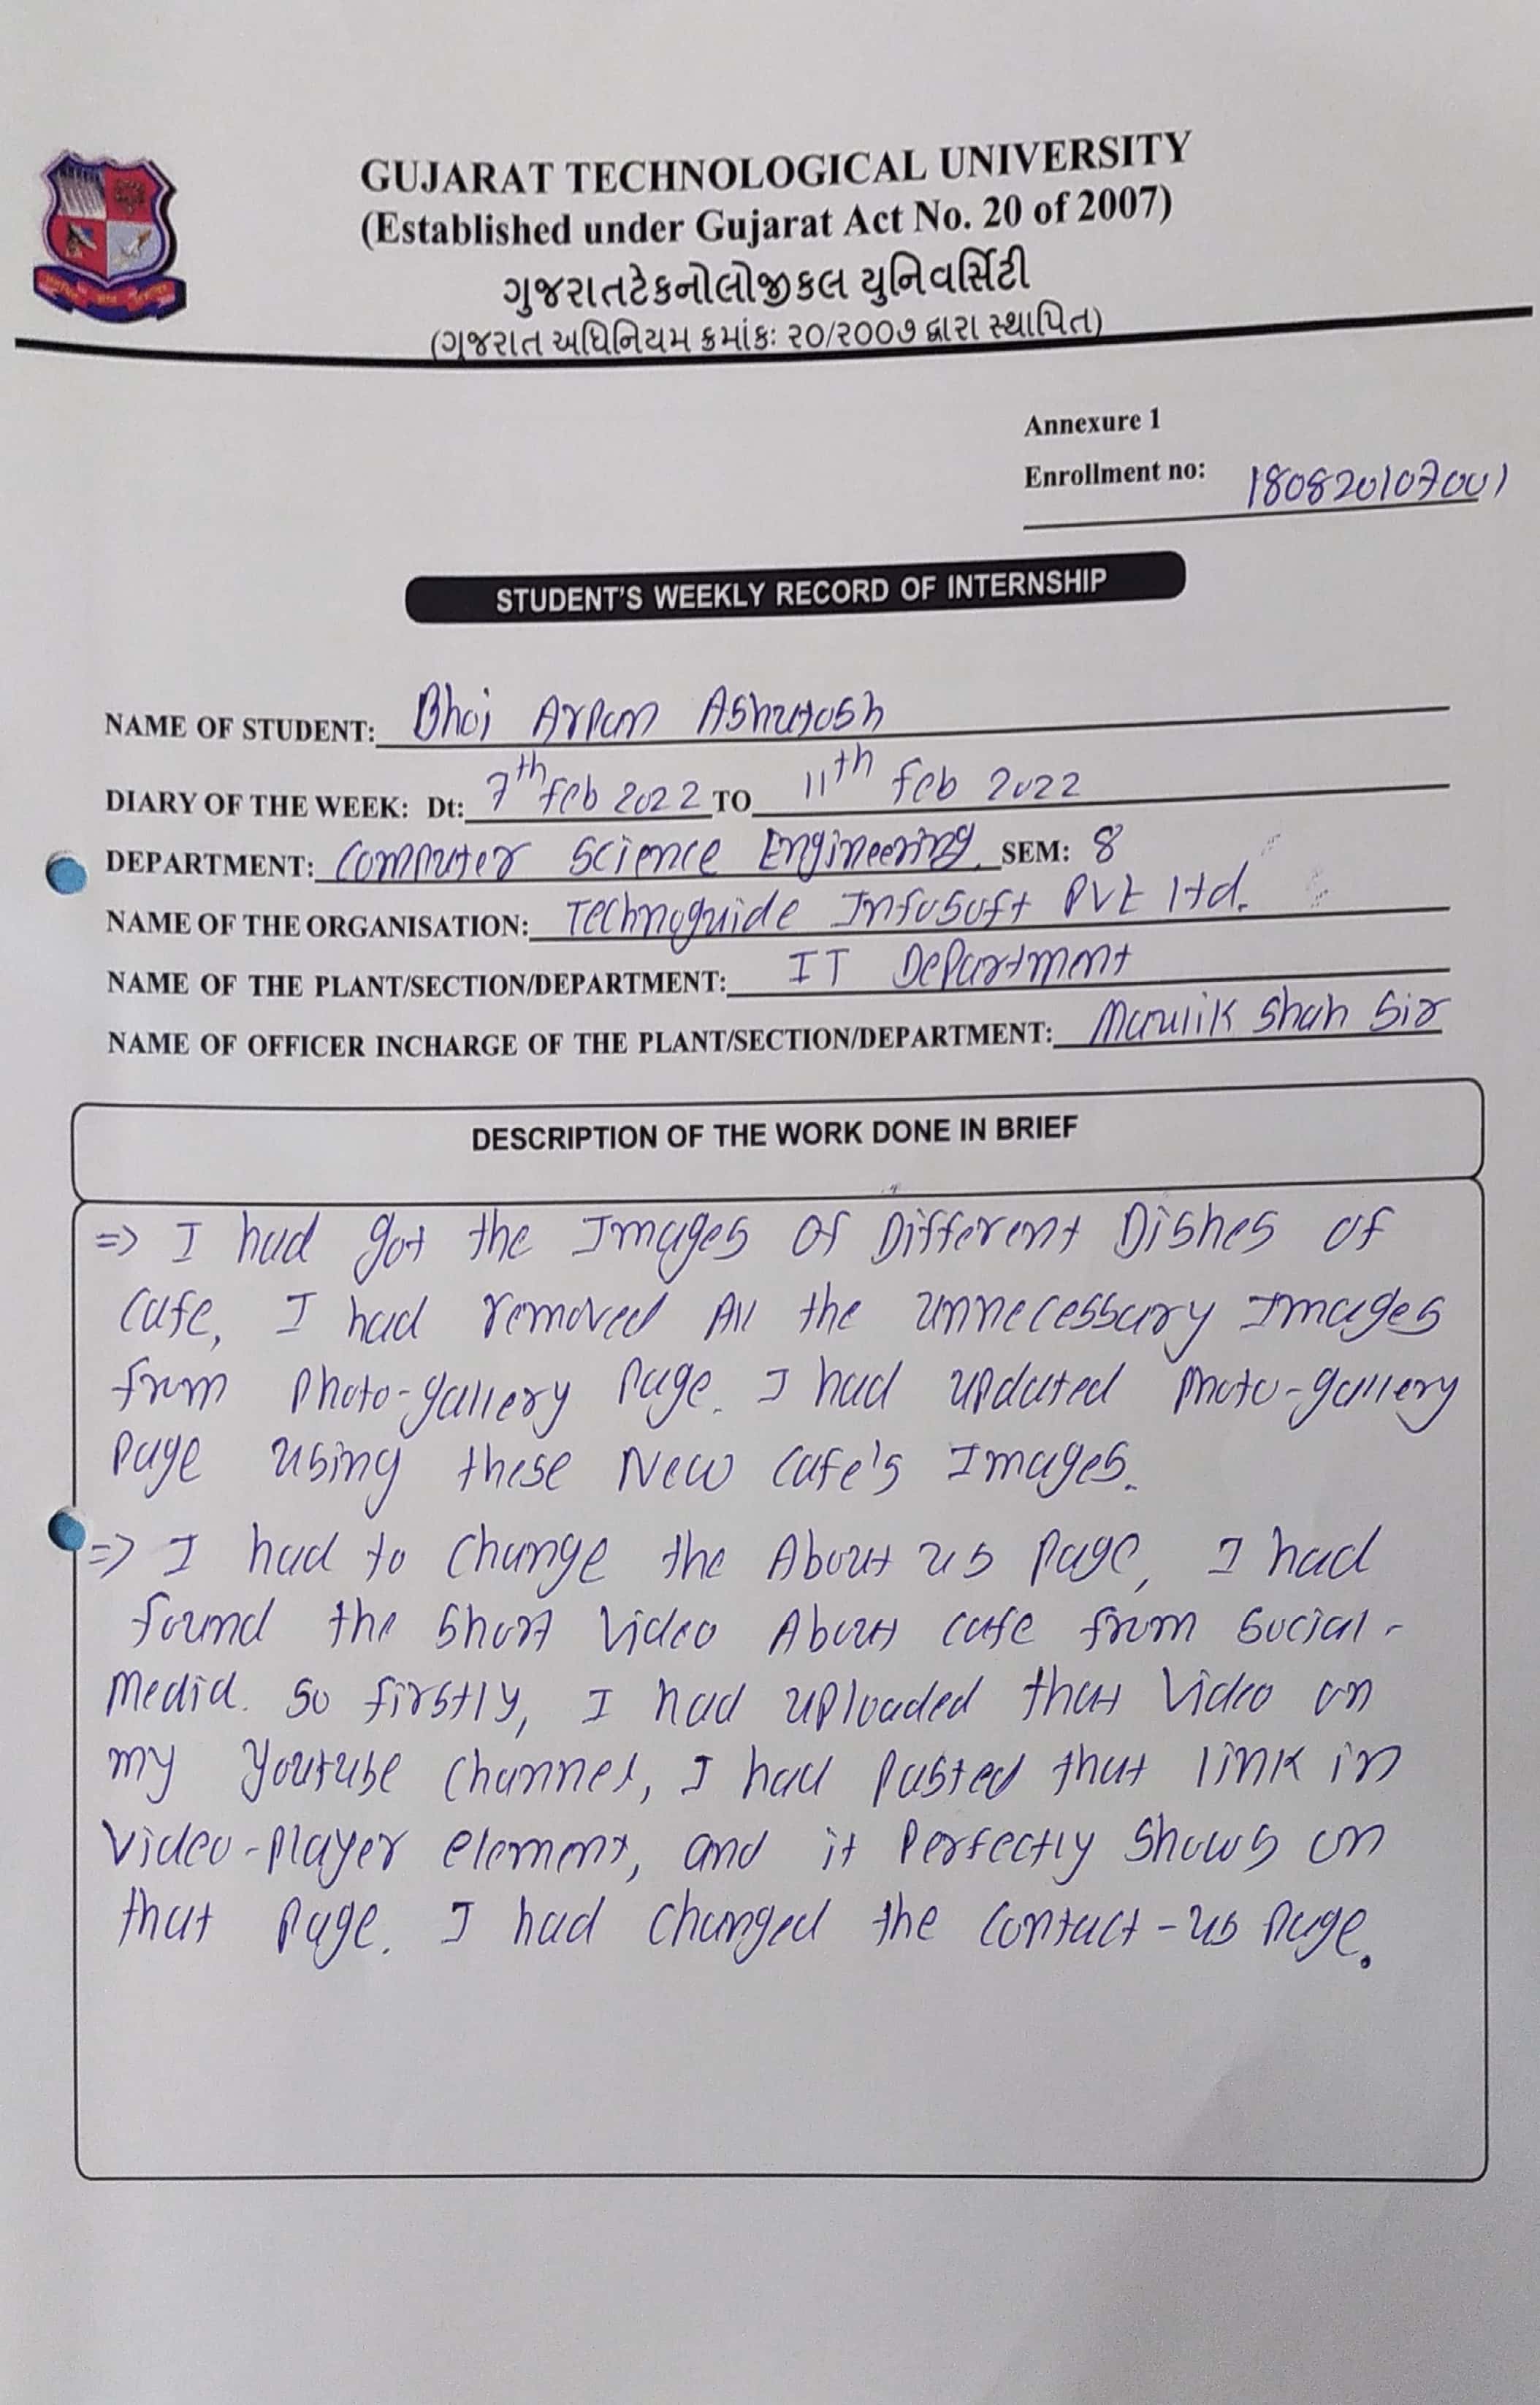 GUJARAT TECHNOLOGICAL UNIVERSITY
(Established under Gujarat Act No. 20 of 2007)
ગુજરાતટેકનોલોજીકલ યુનિવર્સિટી
(ગુજરાત અધિનિયમ ક્રમાંકઃ ૨૦/૨૦૦૭ દ્વારા સ્થાપિત)
Annexure 1
Enrollment no: 180820107001
STUDENT'S WEEKLY RECORD OF INTERNSHIP
NAME OF STUDENT: Bhoi Arpan Ashutosh
DIARY OF THE WEEK: Dt: 7th feb 2022 TO 11th feb 2022
DEPARTMENT: Computer Science Engineering. SEM: 8
NAME OF THE ORGANISATION: Technoguide Infosoft Pvt ltd.
NAME OF THE PLANT/SECTION/DEPARTMENT: IT Department
NAME OF OFFICER INCHARGE OF THE PLANT/SECTION/DEPARTMENT: Maulik Shah Sir
DESCRIPTION OF THE WORK DONE IN BRIEF
=> I had got the Images Of Different Dishes of
Cafe, I had removed All the unnecessary Images
from Photo-gallery Page. I had updated Photo-gallery
Page using these New Cafe's Images.
=> I had to Change the About us Page, I had
found the Short Video About cafe from Social-
Media. So firstly, I had uploaded that Video on
my Youtube Channel, I had Pasted that link in
Video-Player element, and it Perfectly Shows on
that Page. I had Changed the Contact-us Page.